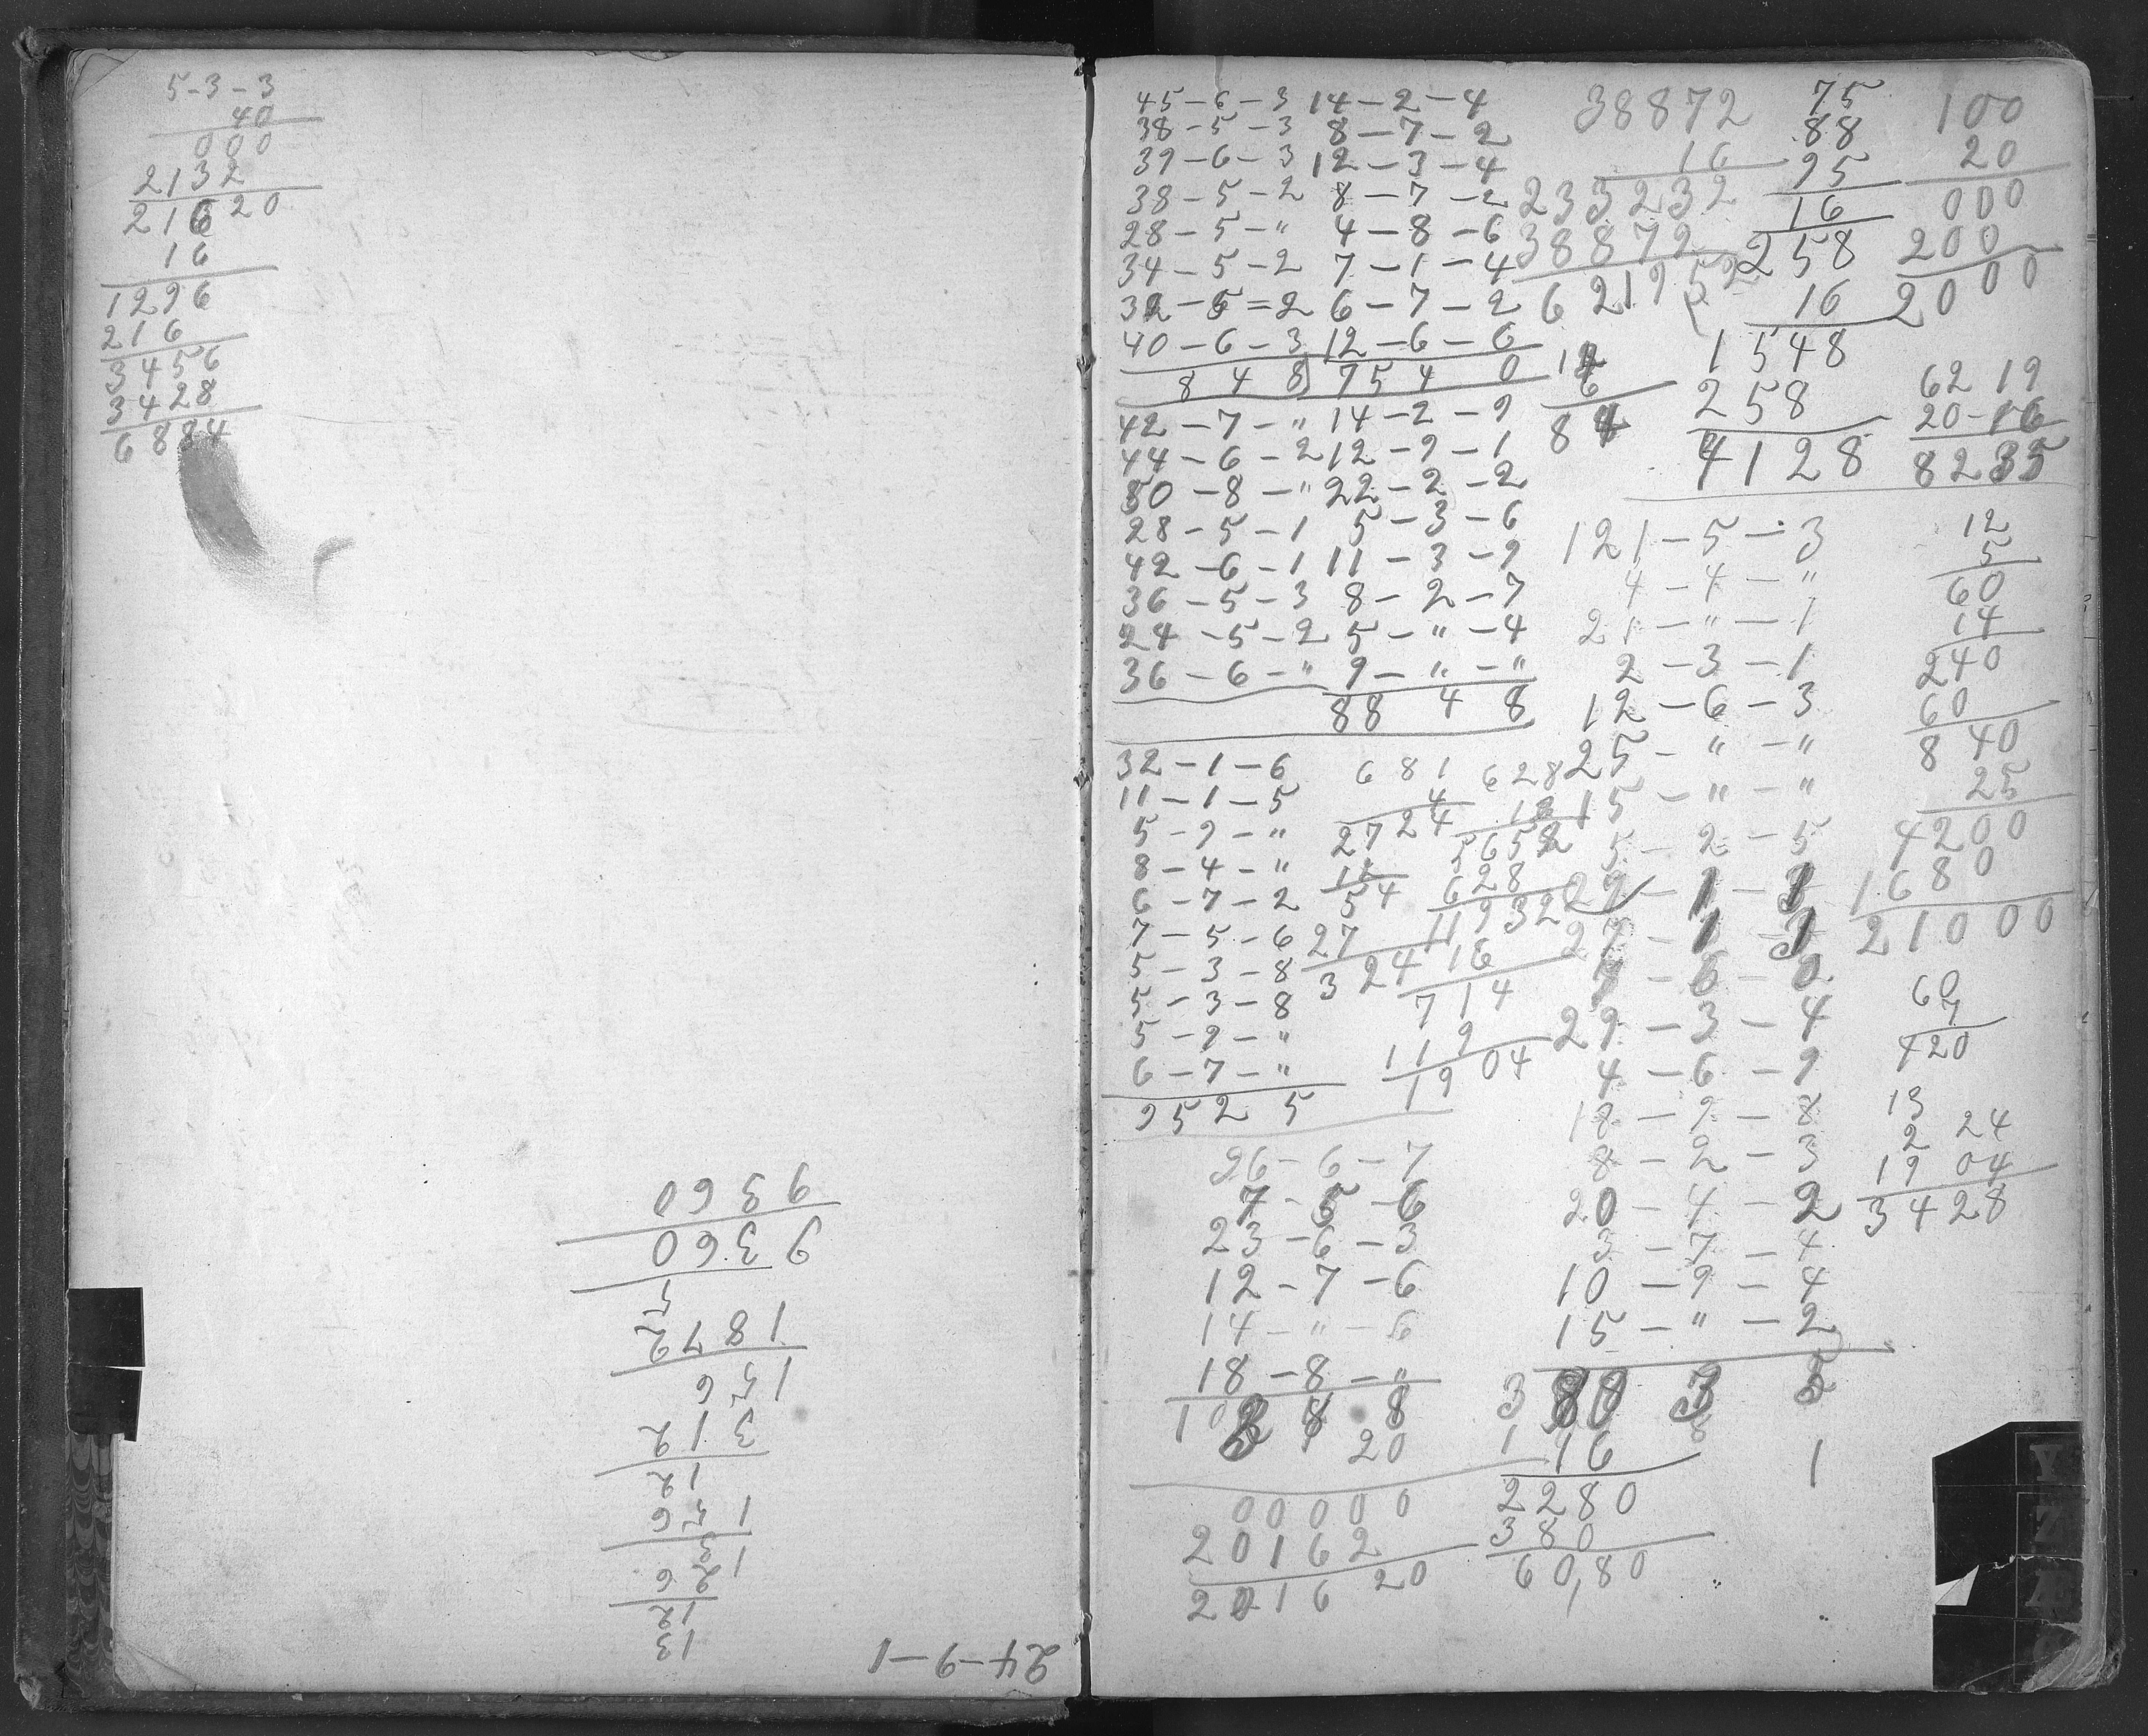 5-3-3
40
000
2132
21620
16
1296
216
3456
3428
6884
13
12
26
13
156
12
312
156
1872
5
9360
9360
24-9-1
45-6-3 14-2-4
38-5-3 8-7-2
39-6-3 12-3-4
38-5-2 8-7-2
28-5-" 4-8-6
34-5-2 7-1-4
32-5=2 6-7-2
40-6-3 12-6-6
8 4 8 75 4 0
42-7-" 14-2-9
44-6-2 12-9-1
50-8-" 22-2-2
28-5-1 5-3-6
42-6-1 11-3-9
36-5-3 8-2-7
24-5-2 5-"-4
36-6-" 9-"-"
88 4 8
32-1-6
11-1-5
5-9-"
8-4-"
6-7-2
7-5-6
5-3-8
5-3-8
5-9-"
6-7-"
95 2 5
681
4
2724
12
54
27
324
628
5652
628
11932
16
714
119
1904
26-6-7
7-5-6
23-6-3
12-7-6
14-"-6
18-8-"
20
00000
20162
201620
38872
16
233232
38872
621952
6
84
75
88
95
16
258
16
1548
258
4128
100
20
000
200
2000
6219
20-16
8235
121-5-3
4-4-"
21-"-1
2-3-1
12-6-3
25-"-"
15-"-"
5-2-5
29-1-3
27-1-1
7-6-0
29-3-4
4-6-9
18-9-8
8-2-3
20-4-2
3-7-4
10-9-4
15-"-2
380 3
16
1
2280
380
60,80
12
5
60
14
240
60
840
25
4200
1680
21000
60
7
420
13
2 24
19 04
3428